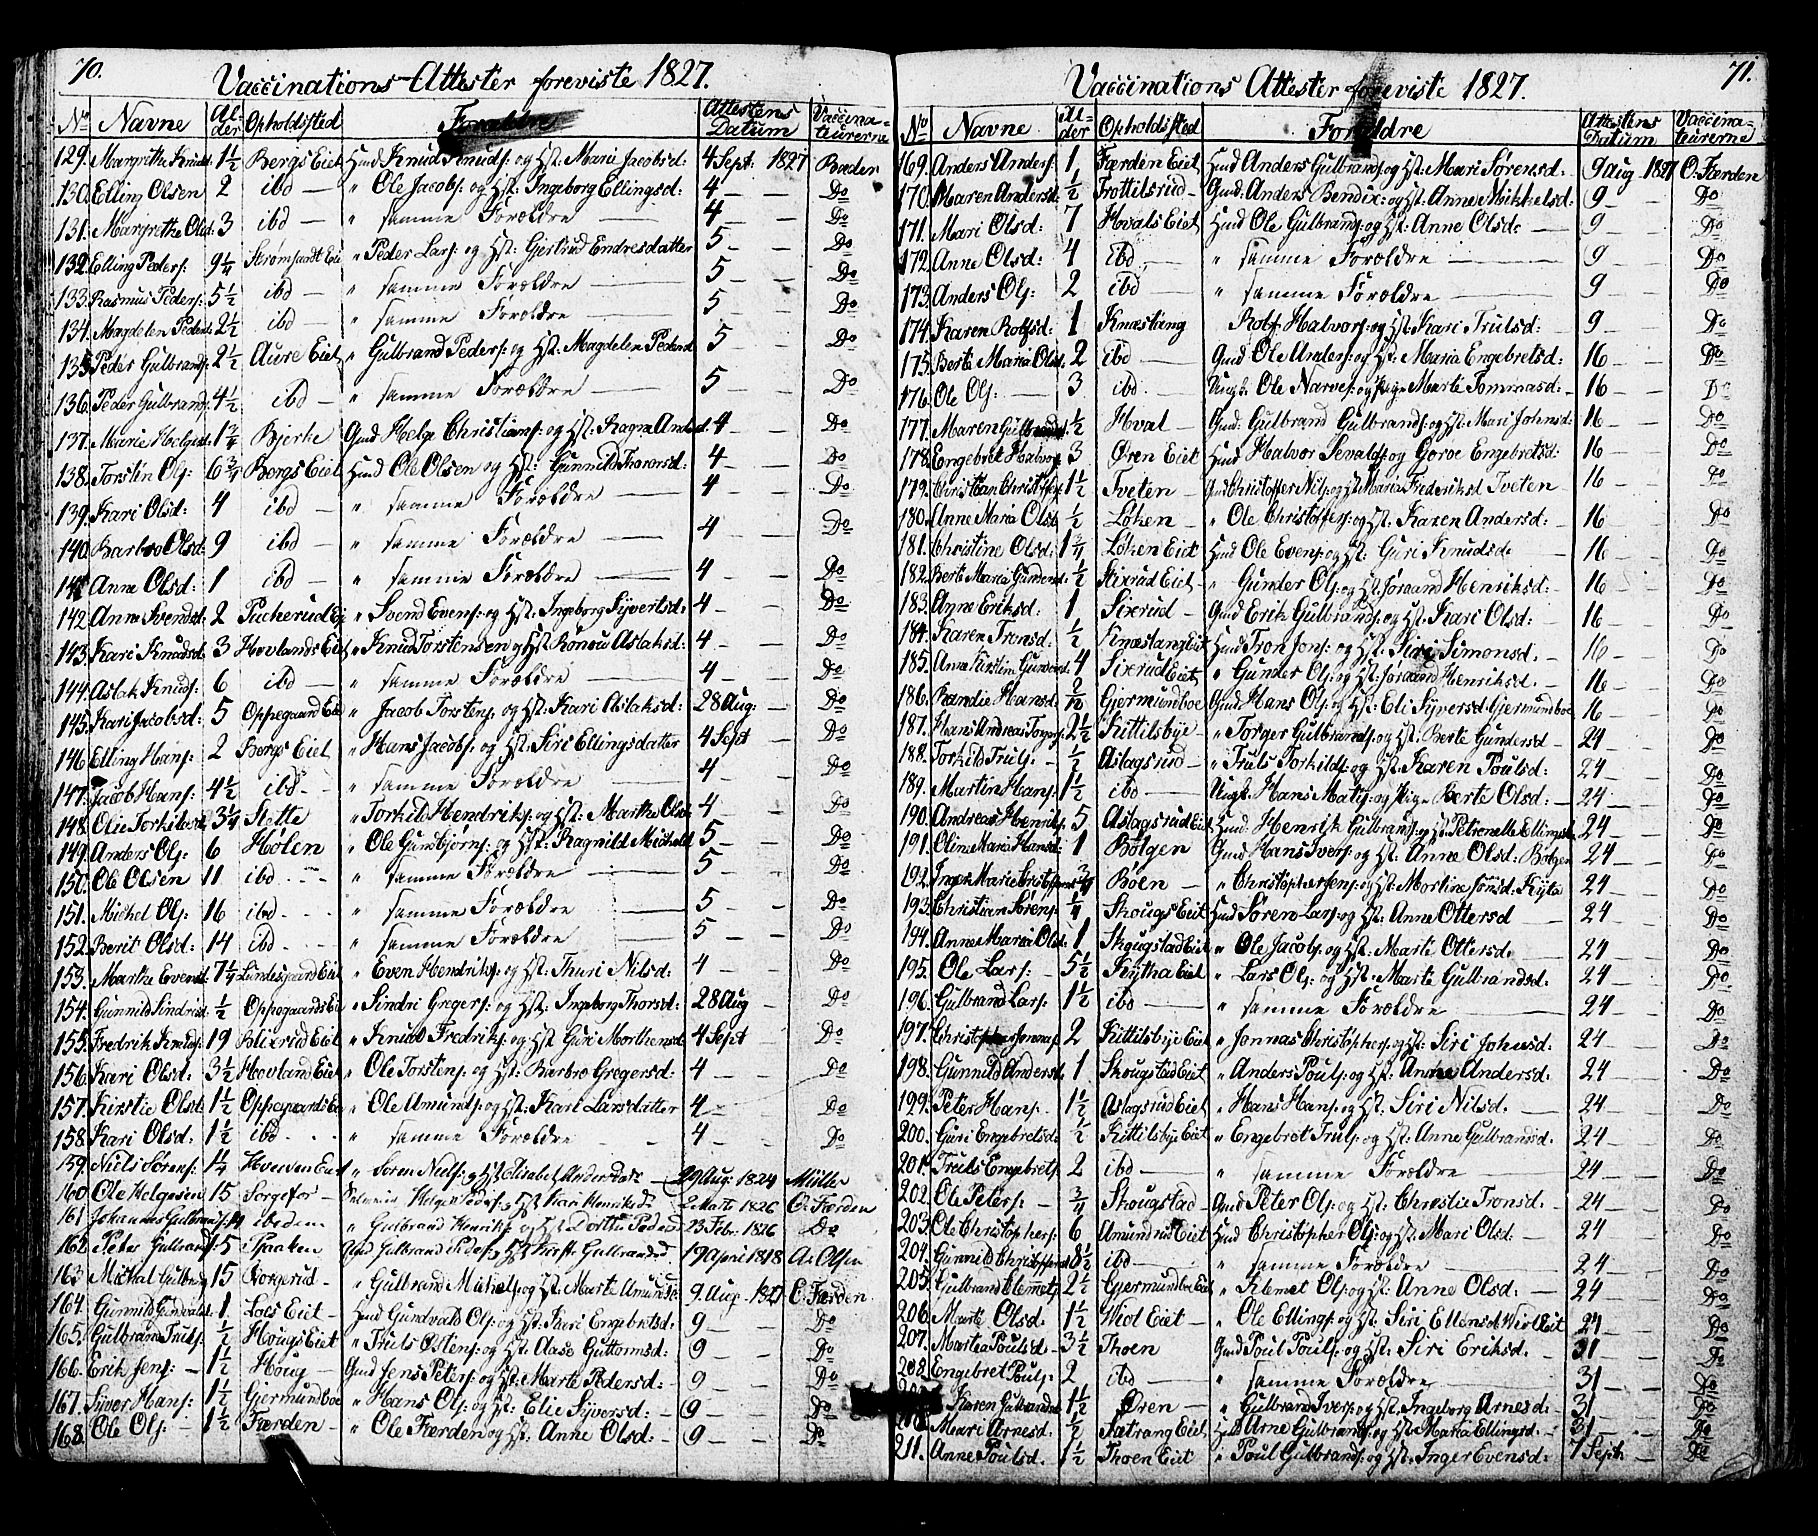 70.
Vaccinations-Attester foreviste 1827.
No Navne Alder Opholdsted Forældre Attestens Datum Vaccinateurerne
129. Margrethe Knudsd: 1½ Bergs Eiet Huusmd Knud Knuds: og Hst: Mari Jacobsd: 4 Sept 1827 Bæder
130. Elling Olsen 2 ibd — " Ole Jacobs: og Hst: Ingeborg Ellingsd: 4 — — Do
131. Margrethe Olsd 3 ibd — " samme Forældre — 4 — — Do
132. Elling Peders: 9¼ Strømsødt Eiet " Peder Lars: og Hst: Gjertrud Endresdatter 5 — — Do
133. Rasmus Peders: 5½ ibd — " samme Forældre — 5 — — Do
134. Magdelen Pedersd: 2½ ibd — " samme Forældre — 5 — — Do
135. Peder Gulbrands: 2½ Aure Eiet " Gulbrand Peders: og Hst: Magdelen Pedersd 5 — — Do
136. Peder Gulbrands: 4½ ibd — " samme Forældre — 5 — — Do
137. Marie Helgesd 1¾ Bjerke Gmd Helge Christians: og Hst: Ragna Andersd. 4 — — Do
138. Torstin Ols: 6¾ Bergs Eiet Hmd Ole Olsen og Hst: Gunnild Thorersd: 4 — — Do
139. Kari Olsd: 4 ibd — " samme Forældre — 4 — — Do
140. Barbro Olsd: 9 ibd — " samme Forældre — 4 — — Do
141. Anne Olsd: 1 ibd — " samme Forældre — 4 — — Do
142. Anne Svendsd: 2 Pucherud Eiet " Svend Evens: og Hst: Ingeborg Syvertsd: 4 — — Do
143. Kari Knudsd: 3 Hovlands Eiet " Knud Torstensen og Hst Rønau Aslaksd: 4 — — Do
144. Aslak Knuds: 6 ibd — " samme Forældre — 4 — — Do
145. Kari Jacobsd: 5 Oppegaard Eiet " Jacob Torstens: og Hst: Kari Aslaksd: 28 Aug: — Do
146. Elling Hans: 2 Bergs Eiet " Hans Jacobs: og Hst: Siri Ellingsdatter 4 Sept — Do
147. Jacob Hans: 4½ ibd - - " samme Forældre — 4 — — Do
148. Olie Torkildsd 3¼ Slette " Torkild Hendriks: og Hst: Marthe Olsd 4 — — Do
149. Anders Ols: 6 Hølen " Ole Gunbjørns: og Hst: Ragnild Michelsd 5 — — Do
150. Ole Olsen 11 ibd - - - " samme Forældre — 5 — — Do
151. Michel Ols: 16 ibd - - " samme Forældre — 5 — — Do
152. Berit Olsd: 14 ibd - - " samme Forældre — 5 — — Do
153. Marthe Evensd 7¼ Lundesgaard Eiet " Even Hendriks: og Hst: Thuri Nilsd: 4 — — Do
154. Gunnild Sindresd: ½ Oppegaards Eiet " Sindri Gregers: og Hst: Ingeborg Thorsd: 28 Aug — Do
155. Fredrik Knuds: 19 Blixrud Eiet " Knud Fredriks: og Hst Guri Morthensd 4 Sept Do
156. Kari Olsd: 3½ Hovland Eiet " Ole Torstens: og Hst: Barbro Gregersd: 4 — — Do
157. Kirstie Olsd 1½ Oppegaards Eiet " Ole Amunds: og Hst: Kari Larsdatter 4 — — Do
158. Kari Olsd: 1½ ibd - - - " samme Forældre - - 4 — — Do
159. Niels Sørens: 1¼ Hverven Eiet " Søren Niels: og Hst Elisabet Andersdatr 29 Aug: 1824 Møller
160. Ole Helgesen 15 Sorgefor — Helge Peders: og Hst Kari Henriksd: 2 Marts 1826 O. Færden
161. Johannes Gulbrands: 14 ibedem " Gulbrand Henriks: og Hst Dorthe Pedersd 23 Febr: 1826 Do
162. Peter Gulbrands: 5 Spaaken Gmd Gulbrand Peders: og Hst Gulbrandsd 19 April 1818 A. Olsen
163. Michal Gulbrands 15 Borgerud — " Gulbrand Michels: og Hst: Marte Amundsd: 9 Aug - 1827 O. Færden
164. Gunnild Gundvaldsd. 1 Loes Eiet — Hmd Gundvald Ols: og Hst: Kari Engebretsd: 9 — — Do
165. Gulbrand Truls: ½ Houg Eiet " Truls Østens: og Hst: Aase Guttormsd: 9 — — Do
166. Erik Jens: — 1½ Houg — Gmd Jens Peters: og Hst: Marte Pedersd: — 9 — — Do
167. Syver Hans: 1½ Gjermundboe " Hans Ols: og Hst: Elie Syversd: — 9 — — Do
168. Ole Ols: — 1½ Færden — " Ole Færden og Hst: Anne Olsd: — 9 — — Do
71.
Vaccinations Attester foreviste 1827.
No Navne Alder Opholdsted Forældre Attestens Datum Vaccinateurerne
169. Anders Anders: 1 Færden Eiet Hmd Anders Gulbrands: og Hst: Mari Sørensd: 9 Aug - 1827 O. Færden
170. Maren Andersd: ½ Trottilsrud — Gmd: Anders Bendix: og Hst: Anne Mikkelsd: 9 — — Do
171. Mari Olsd: 7 Hvals Eiet Hmd Ole Gulbrands: og Hst: Anne Olsd: — 9 — — Do
172. Anne Olsd: 4 ibd: — " samme Forældre — 9 — — Do
173. Anders Ols: 2 ibd — " samme Forældre — 9 — — Do
174. Karen Rolfsd: 1 Knæstang Rolf Halvors: og Hst: Kari Trulsd: 9 — — Do
175. Berte Maria Olsd. 2 ibd — Gmd Ole Anders: og Hst: Maria Engebretsd: 16 — — Do
176. Ole Ols: — 3 ibd. — Ungk: Ole Narves: og Pige Marte Tommasd: — 16 — — Do
177. Maren Gulbrandsd: ½ Hval — Gmd: Gulbrand Gulbrands: og Hst: Mari Johnsd: 16 — — Do
178. Engebret Halvors: 3 Øren Eiet Hmd Halvor Sevalds: og Goroe Engebretsd: 16 — — Do
179. Christian Christoffers: 1½ Tveten — Gmd Christoffer Nils: og Hst Maria Frederiksd Tveten — 16 — — Do
180. Anne Maria Olsd. ½ Løken — " Ole Christoffers: og Hst: Karen Andersd: — 16 — — Do
181. Christine Olsd: 1¾ Løken Eiet Hmd Ole Evens: og Hst: Guri Knudsd: 16 — — Do
182. Berte Maria Gundersd: ½ Sixrud Eiet — " Gunder Ols: og Hst Jøraand Henriksd: — 16 — — Do
183. Anne Eriksd: 1 Sixrud — Gmd Erik Gulbrands: og Hst: Kari Olsd: — 16 — — Do
184. Karen Tronsd: ½ Knæstang Eiet Hmd Tron Jons: og Hst: Siri Simonsd. — 16 — — Do
185. Anne Kirstin Gundersd 4 Sixrud Eiet " Gunder Ols: og Hst: Jøraand Henriksd. — 16 — — Do
186. Randie Hansd: Gjermundboe Gmd Hans Ols: og Hst: Eli Syversd: Gjermundboe 16 — — Do
187. Hans Andreas Torgers: 2½ Kittilsbye " Torger Gulbrands: og Hst: Berte Gundersd — 24 — — Do
188. Torkild Truls: — ½ Aslagsrud — " Truls Torkilds: og Hst: Karen Poulsd: 24 — — Do
189. Martin Hans: 1½ ibd: — Ungk: Hans Mats: og Pige Berte Olsd: — 24 — — Do
190. Andreas Henriks: 5 Aslagsrud Eiet Hmd: Henrik Gulbrands: og Hst: Petronelle Ellingsd. 24 — — Do
191. Oline Maria Hansd: 1 Bølgen Gmd Hans Ivers: og Hst: Anne Olsd: Bølgen 24 — — Do
192. Inger Marie Christophersd ¾ Bøen — " Christopher Jens: og Hst: Martine Jonsd: Kyta 24 — — Do
193. Christian Sørens: ¼ Skougs Eiet Hmd Søren Lars: og Hst: Anne Ottersd 24 — — Do
194. Anne Maria Olsd: 1 Skougstad Eiet " Ole Jacobs: og Hst: Marte Ottersd: 24 — — Do
195. Ole Lars: — 5½ Kytha Eiet — " Lars Ols: og Hst: Marte Gulbrandsd: 24 — — Do
196. Gulbrand Lars: 1½ ibd — " samme Forældre — 24 — — Do
197. Christopher Jonnas: 2 Kittilsbye Eiet " Jonnas Christophers: og Hst: Siri Johnsd: 24 — — Do
198. Gunnild Andersd: 1 Skougstad Eiet " Anders Pouls: og Hst: Anne Andersd: 24 — — Do
199. Peter Hans: 1½ Aslagsrud Eiet " Hans Hans: og Hst: Siri Nilsd. — 24 — — Do
200. Guri Engebretsd: ½ Kittilsbye Eiet " Engebret Truls: og Hst: Anne Gulbrandsd: 24 — — Do
201. Truls Engebrets: 2 ibd — " samme Forældre 24 — — Do
202. Ole Peters: — ¾ Skougstad — Gmd Peter Ols: og Hst: Christie Tronsd: 24 — — Do
203. Ole Christophers: 6 Amundrud Eiet Hmd Christopher Ols: og Hst: Mari Olsd: 24 — — Do
204. Gunnild Christoffersd 8½ ibd: — " samme Forældre — 24 — — Do
205. Gulbrand Clemets: 2½ Gjermundboe Eiet " Klemet Ols: og Hst: Anne Olsd: 24 — — Do
206. Marte Olsd: 1½ Wiol Eiet — " Ole Ellings: og Hst: Siri Ellensd: Wiol Eiet 24 — — Do
207. Martea Poulsd. — 3½ Thoen Gmd Poul Pouls: og Hst: Siri Eriksd. — 31 — — Do
208. Engebret Pouls: 2 ibd — " samme Forældre — 31 — — Do
Karen Gulbrandsd 1½ Øren — " Gulbrand Ivers: og Hst: Ingeborg Arnesd: — 31 — — Do
Mari Arnesd: ½ Sætrang Eiet Hmd Arne Gulbrands: og Hst: Maria Ellingsd: — 31 — — Do
211. Anne Poulsd. 1½ Thoen Eiet " Poul Gulbrands: og Hst: Inger Evensd: 7 Sept: — Do